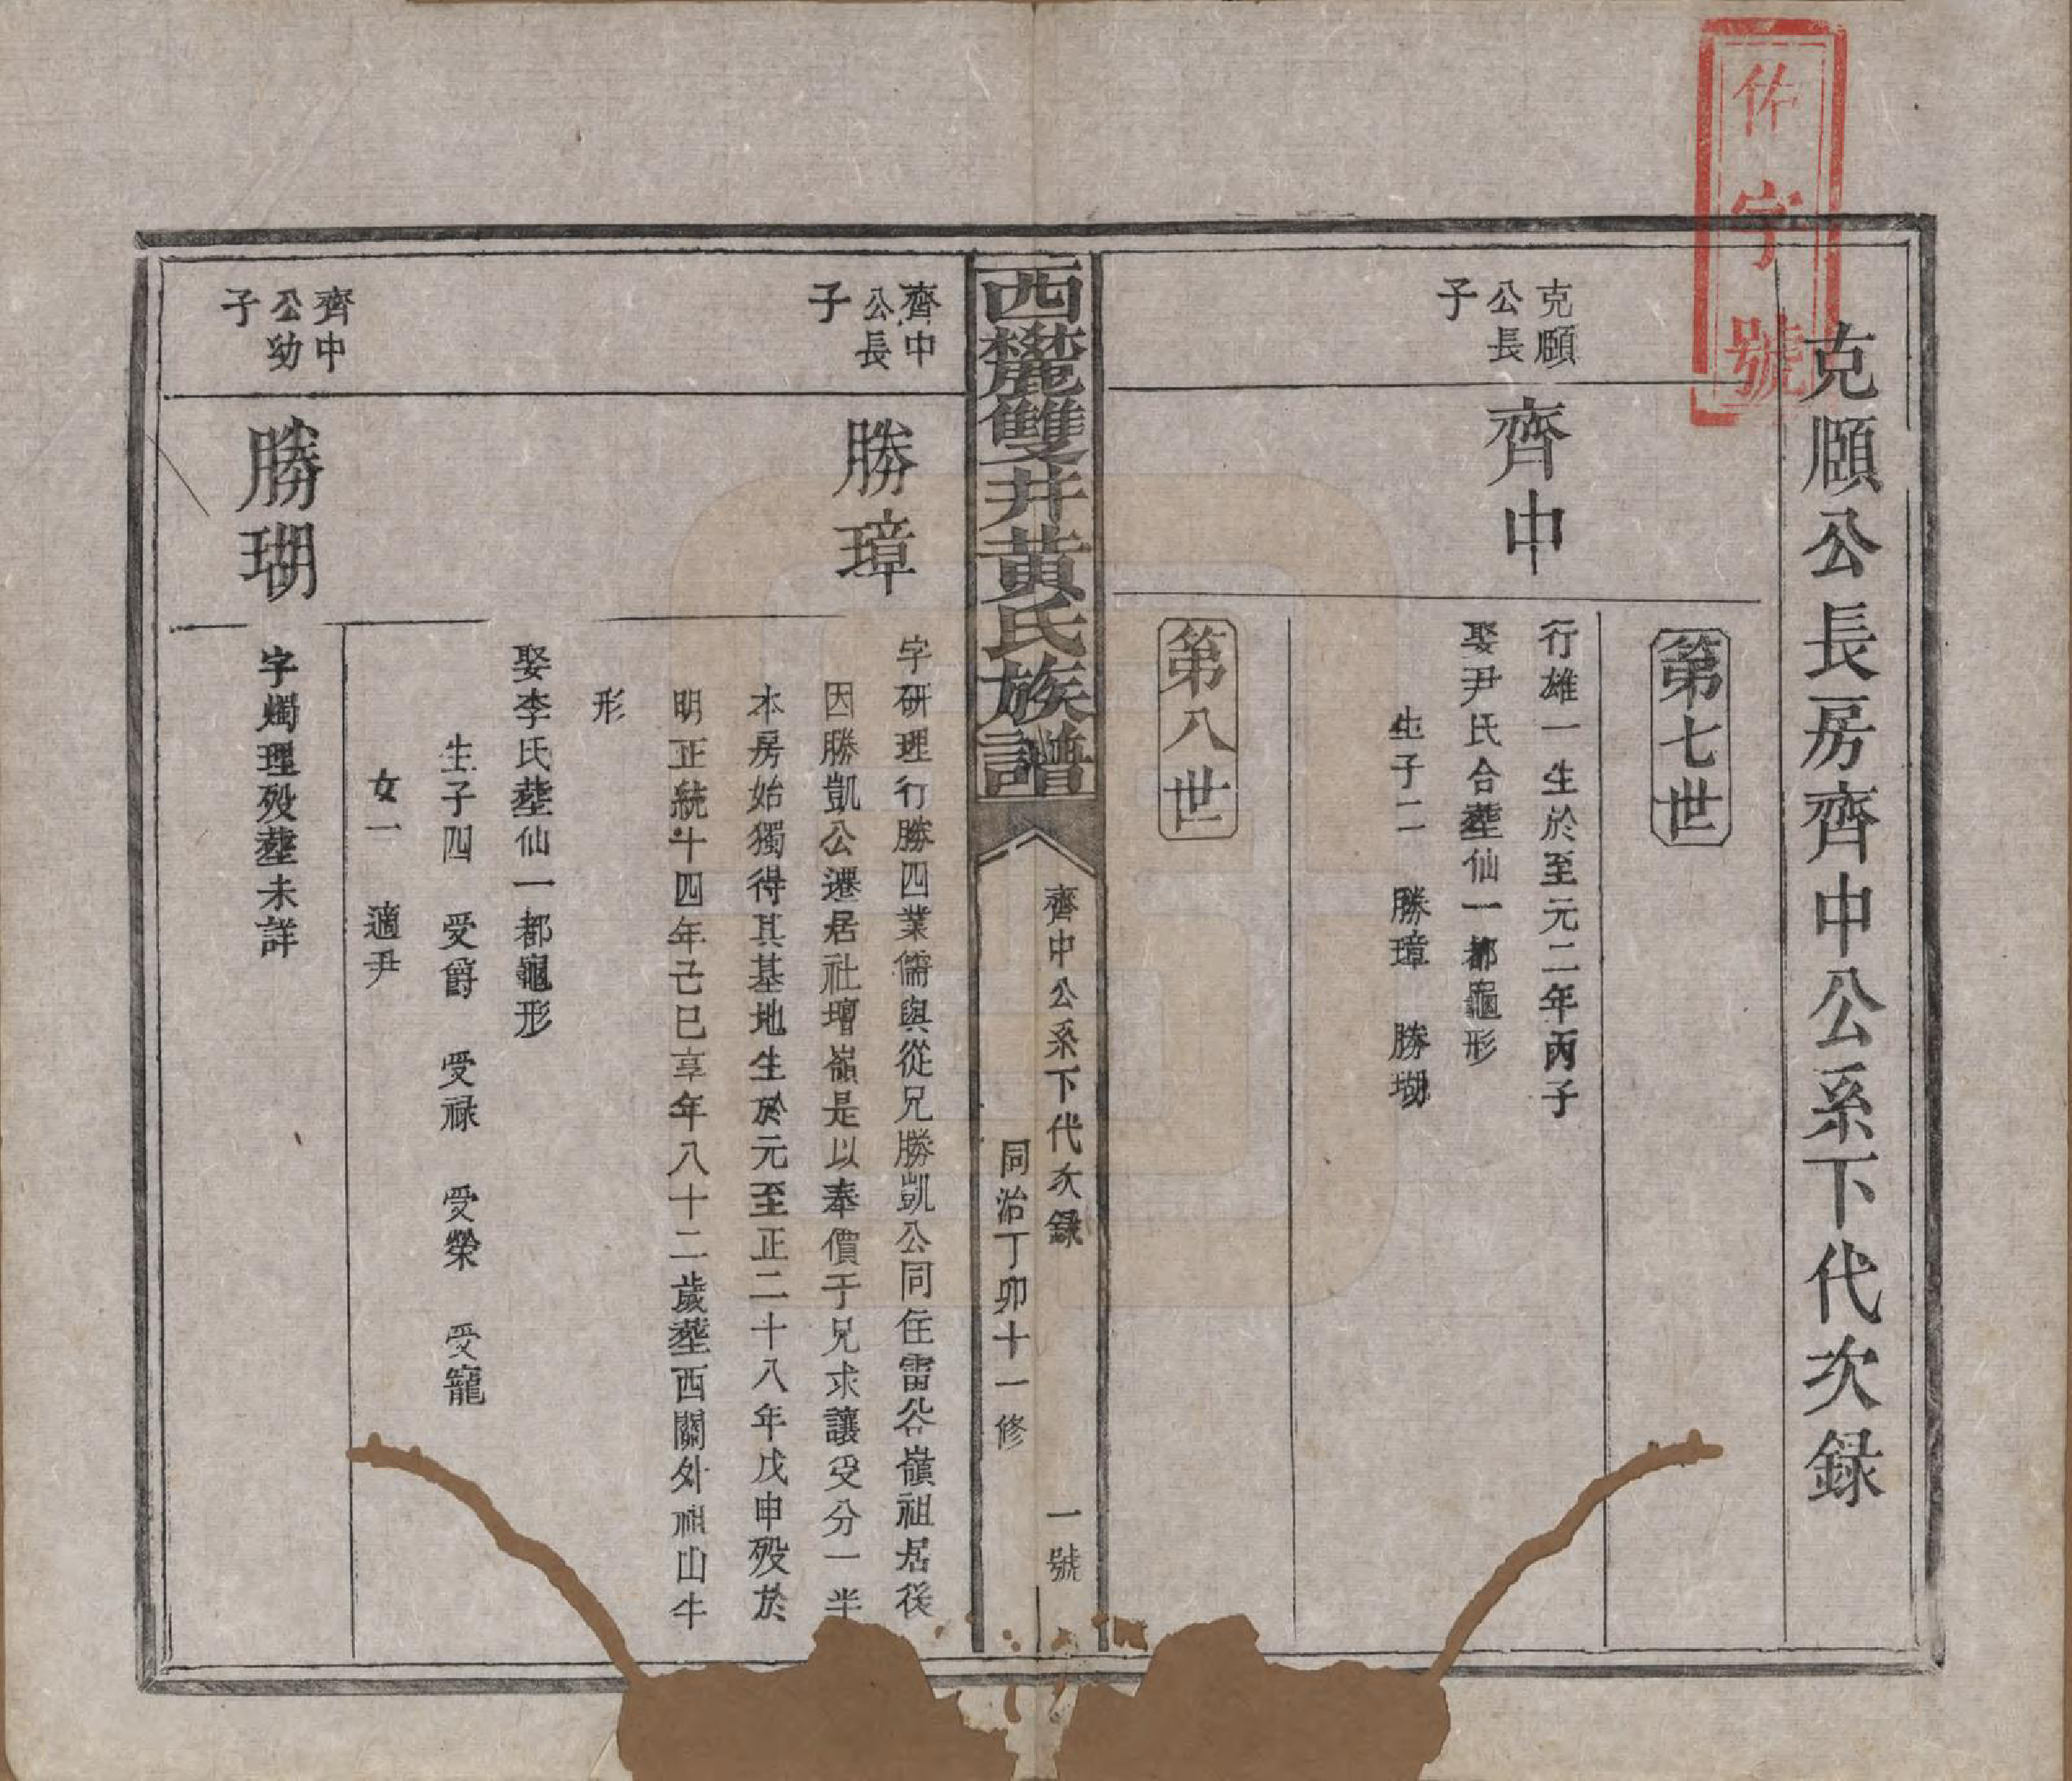 佐字號
克頤公長房齊中公系下代次録
第七世
克頤
公長
子
齊中
行雄一生於至元二年丙子
娶尹氏合塟仙一都龜形
生子二　勝璋　勝瑚
第八世
西麓雙井黄氏族譜
齊中公系下代次録　一號
同治丁卯十一修
齊中
公長
子
勝璋
字研理行勝四業儒與從兄勝凱公同住雷公嶺祖居後
因勝凱公遷居社壇嶺是以奉價于兄求讓受分一半
本房始獨得其基地生於元至正二十八年戊申殁於
明正統十四年己巳享年八十二歲塟西關外祖山牛
形
娶李氏塟仙一都龜形
生子四　受爵　受禄　受榮　受寵
女一　適尹
齊中
公幼
子
勝瑚
字燭理殁塟未詳